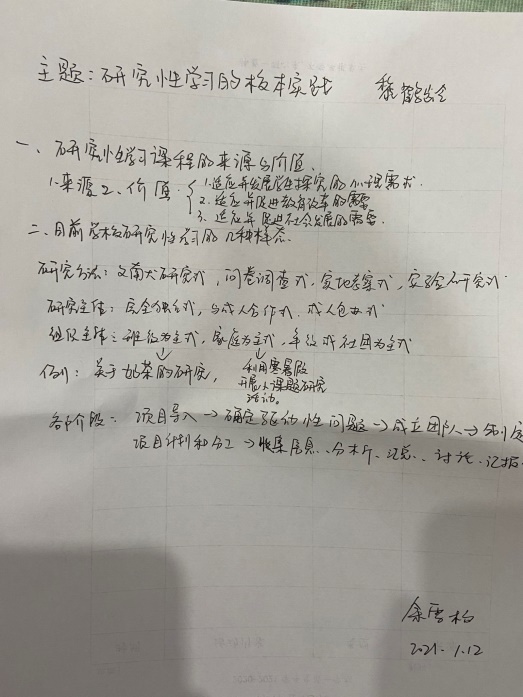 主题:研究性学习的校本实践
一、研究性学习课程的来源与价值.
1.来源 2、价值: 1.适应并发展学生探究的心理需求.
2.适应并促进教育改革的需要
3、适应并促进社会发展的需要.
二、目前学校研究性学习的几种样态.
研究方法:文献研究式,问卷调查式,实地考察式,实验研究式
研究主体:完全独立式,与成人合作式,成人包办式
组织主体:班级为主式,家庭为主式,年级或社团为主式
例:关于奶茶的研究,
利用寒暑假
开展小课题研究
活动.
各阶段:项目导入→确定驱动性问题→成立团队→制定
项目计划和分工→收集信息、分析、汇总、讨论、汇报
余雪柏
2021.1.12